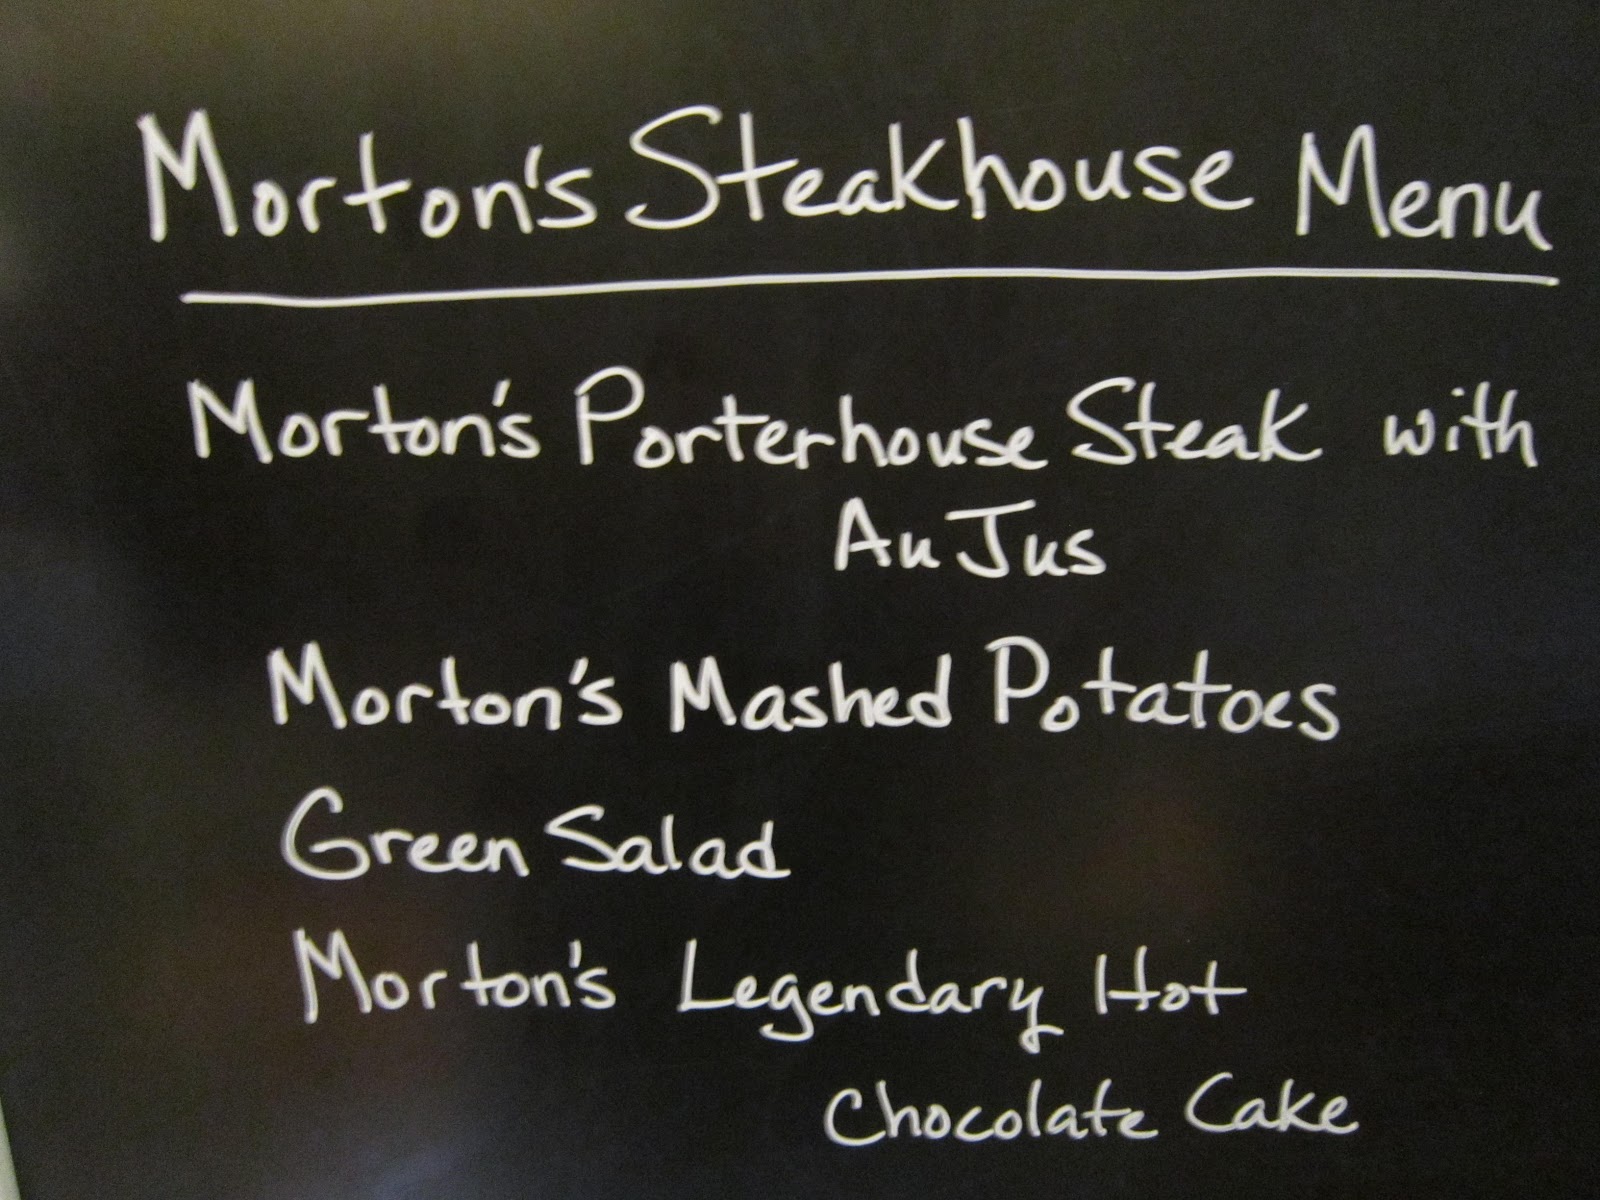 Morton's Steakhouse Menu
Morton's Porterhouse Steak with
Au Jus
Morton's Mashed Potatoes
Green Salad
Morton's Legendary Hot
Chocolate Cake